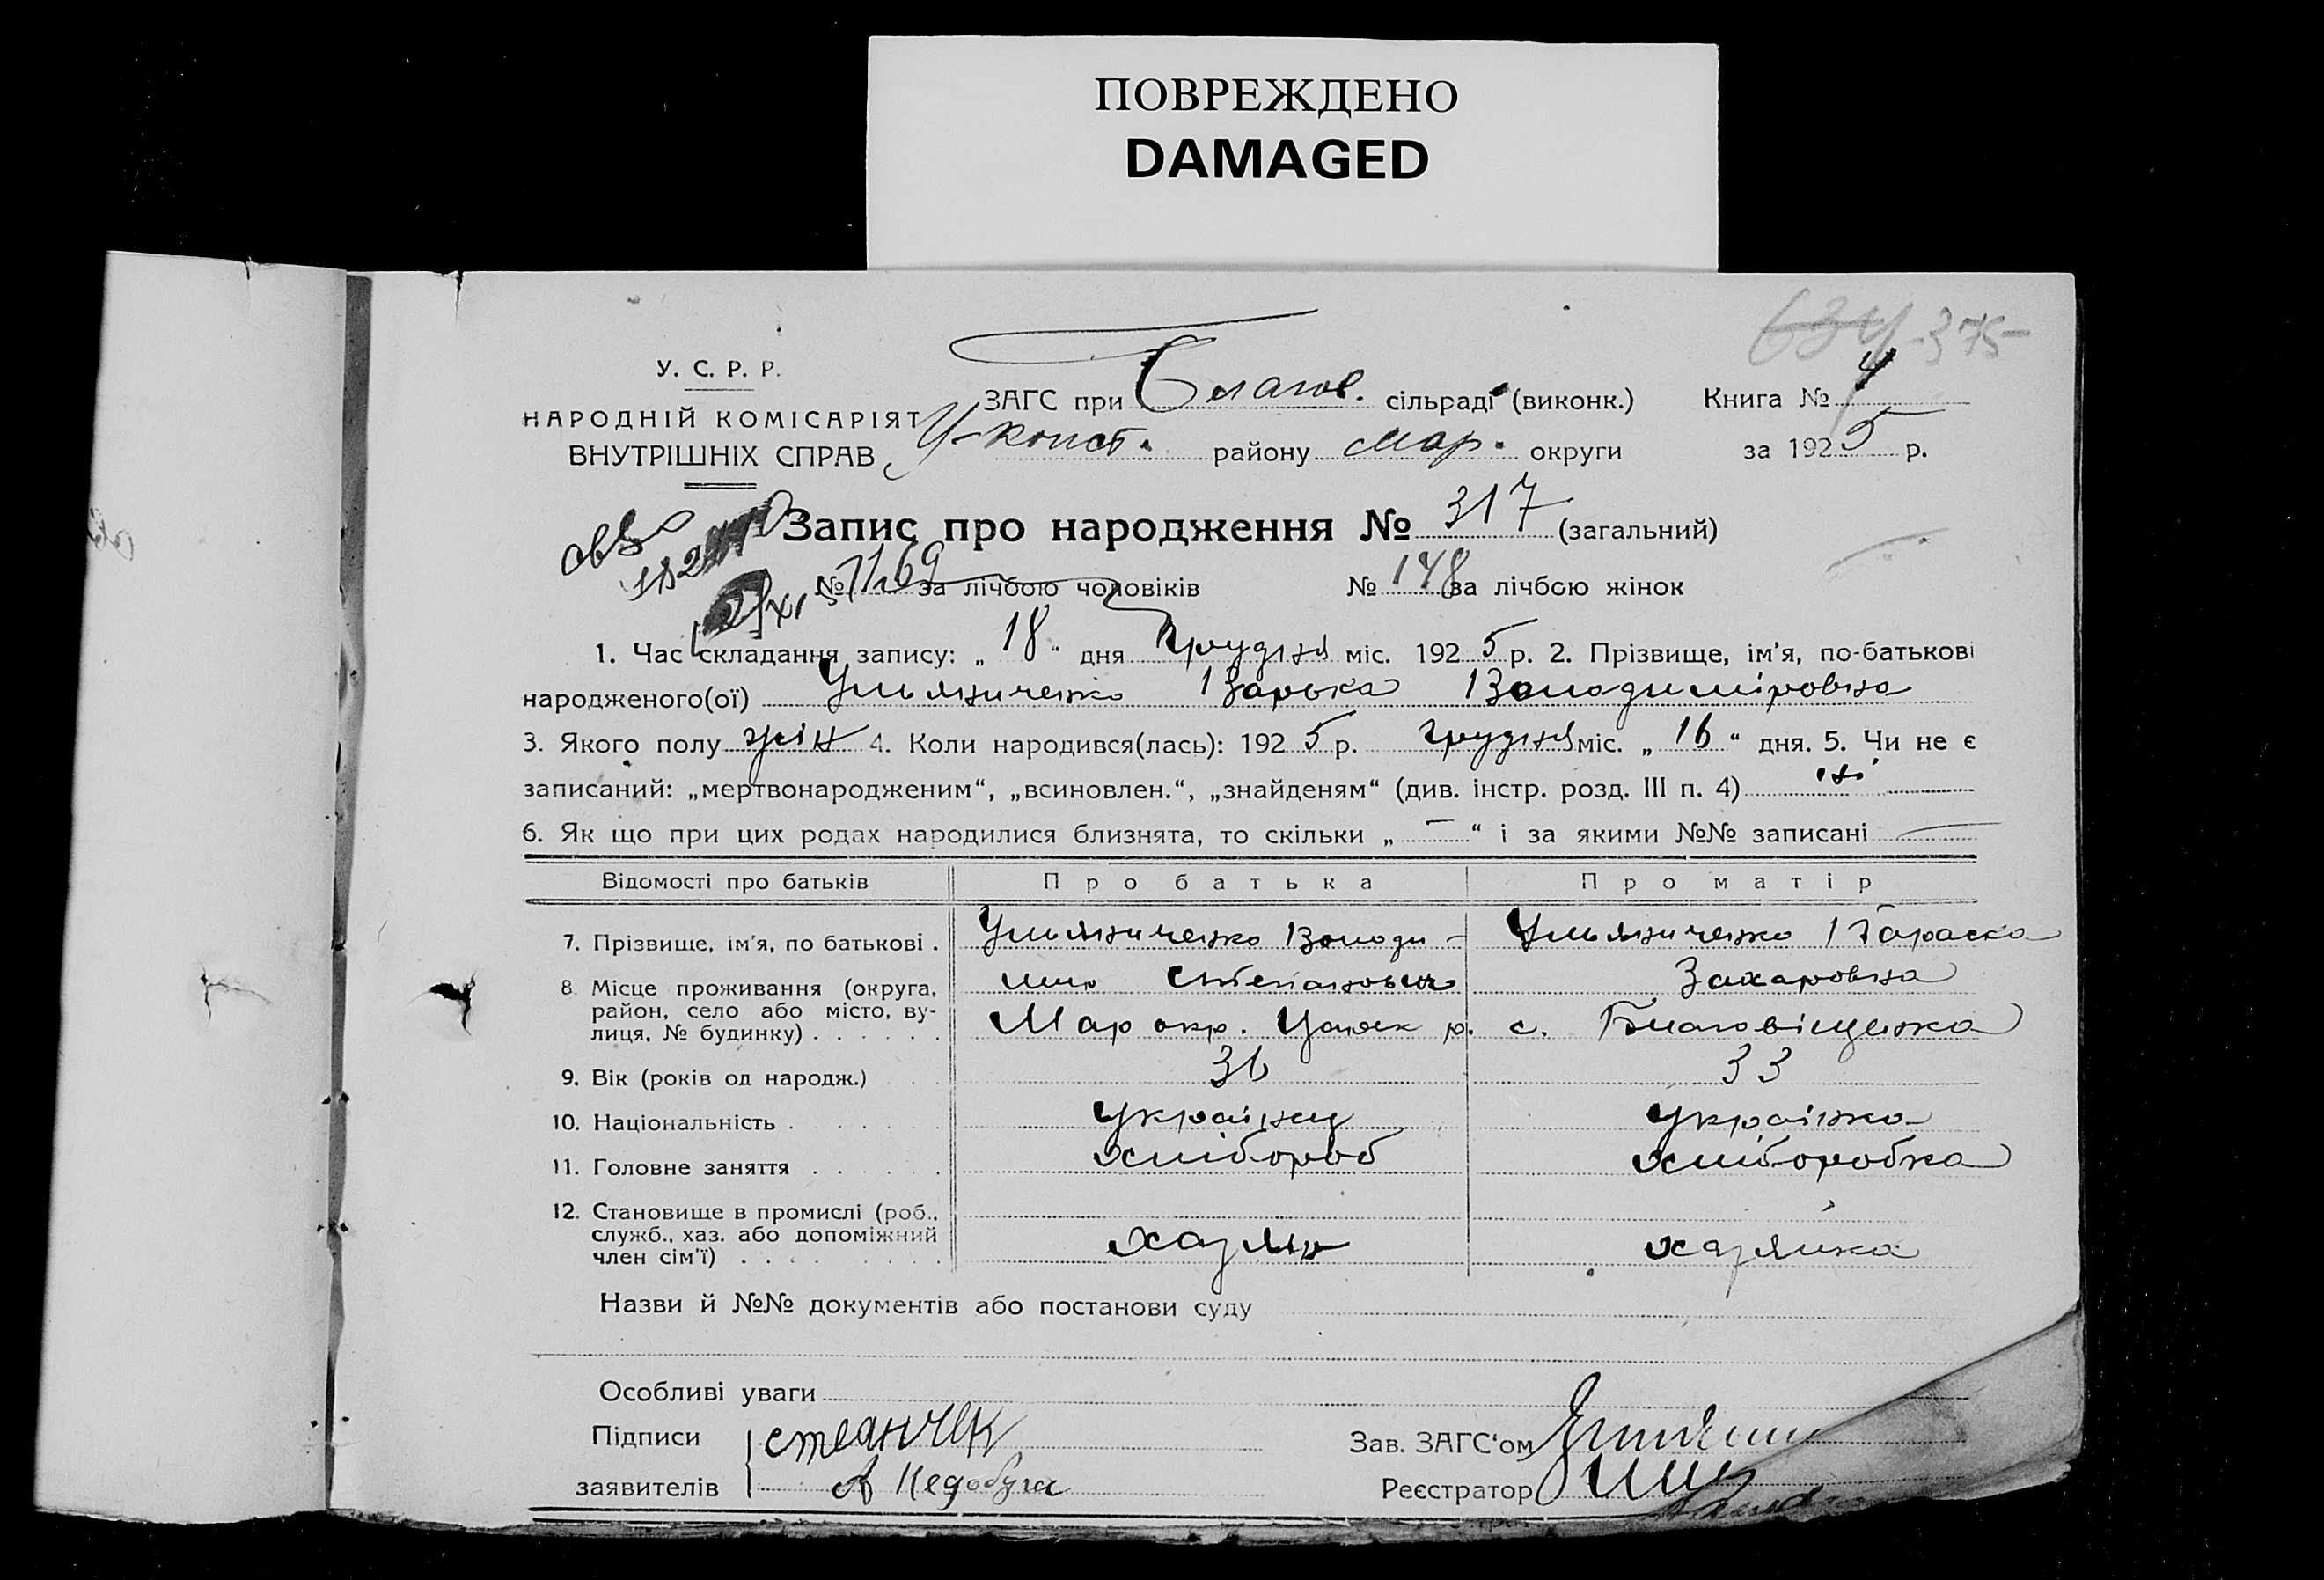 ПОВРЕЖДЕНО
DAMAGED
375
У. С. Р. Р.
НАРОДНІЙ КОМІСАРІЯТ
ВНУТРІШНІХ СПРАВ
ЗАГС при Благов. сільраді (виконк.) Книга № 4
У-конст. району Мар. округи за 1925 р.
Запис про народження № 317 (загальний)
№ 169 за лічбою чоловіків № 148 за лічбою жінок
1. Час складання запису: „18“ дня Грудня міс. 1925 р. 2. Прізвище, ім'я, по-батькові
народженого(ої) Ульяниченко Варька Володиміровна
3. Якого полу жін 4. Коли народився(лась): 1925 р. Грудня міс. „16“ дня. 5. Чи не є
записаний: „мертвонародженим“, „всиновлен.“, „знайденям“ (див. інстр. розд. III п. 4) ні
6. Як що при цих родах народилися близнята, то скільки „—“ і за якими №№ записані —
Відомості про батьків Про батька Про матір
7. Прізвище, ім'я, по батькові . Ульяниченко Володи- Ульяниченко Параска
мир Степанович Захаровна
8. Місце проживання (округа,
район, село або місто, ву-
лиця, № будинку) . . . . . . Мар окр. р. с. Благовіщенка
9. Вік (років од народж.) 36 33
10. Національність . Українец Українка
11. Головне заняття . . . . . . Хлібороб Хліборобка
12. Становище в промислі (роб.,
служб., хаз. або допоміжний
член сім'ї) . . . . хазяін хазяйка
Назви й №№ документів або постанови суду
Особливі уваги
Підписи
заявителів А Недобуга
Зав. ЗАГС'ом
Реєстратор